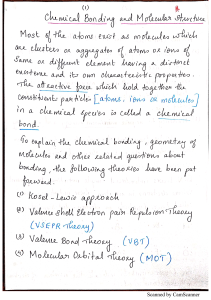 (1)
Chemical Bonding and Molecular Structure
Most of the atoms exist as molecules which
are clusters or aggregates of atoms or ions of
same or different element having a distinct
existence and its own characteristic properties.
The attractive force which hold together the
constituent particles [atoms, ions or molecules]
in a chemical species is called a chemical
bond.
To explain the chemical bonding, geometry of
molecules and other related questions about
bonding, the following theories have been put
forward.
(1) Kosel-Lewis approach
(2) Valence Shell Electron pair Repulsion Theory
(VSEPR Theory)
(3) Valence Bond Theory (VBT)
(4) Molecular Orbital Theory (MOT)
Scanned by CamScanner